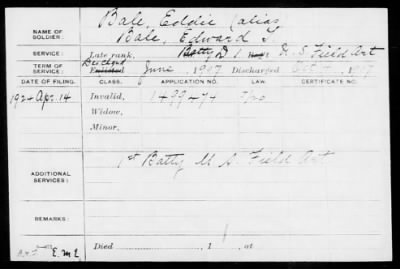 NAME OF SOLDIER: Bale, Eoldie (alias
Bale, Edward T
SERVICE: Late rank, Batty D 1 U. S Field Art
TERM OF SERVICE: Enlisted June, 1907 Discharged Oct 1907
DATE OF FILING. CLASS. APPLICATION NO. LAW. CERTIFICATE NO.
1924 Apr. 14 Invalid, 1499474
Widow,
Minor,
ADDITIONAL SERVICES: 1st Batty U S. Field Art
REMARKS:
E.M.E
Died , 1 , at